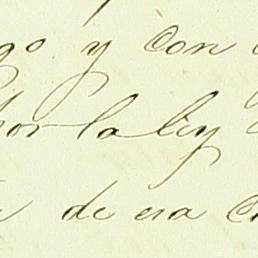 go y con
por la ley
de esa